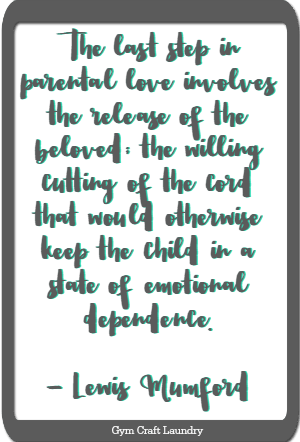 The last step in
parental love involves
the release of the
beloved; the willing
cutting of the cord
that would otherwise
keep the child in a
state of emotional
dependence.
- Lewis Mumford
Gym Craft Laundry